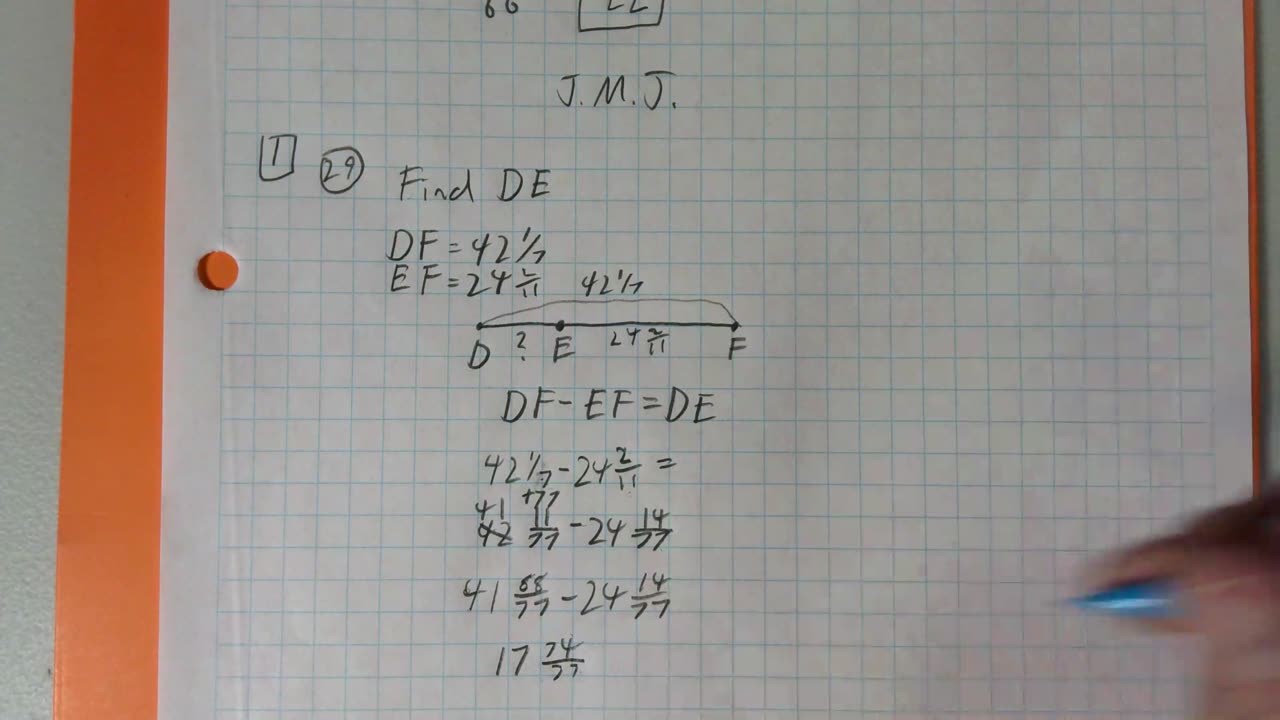 66 22
J.M.J.
1 29 Find DE
DF = 42 1/7
EF = 24 2/11 42 1/7
? 24 2/11
D E F
DF - EF = DE
42 1/7 - 24 2/11 =
41 +77
42 11/77 - 24 14/77
41 88/77 - 24 14/77
17 74/77